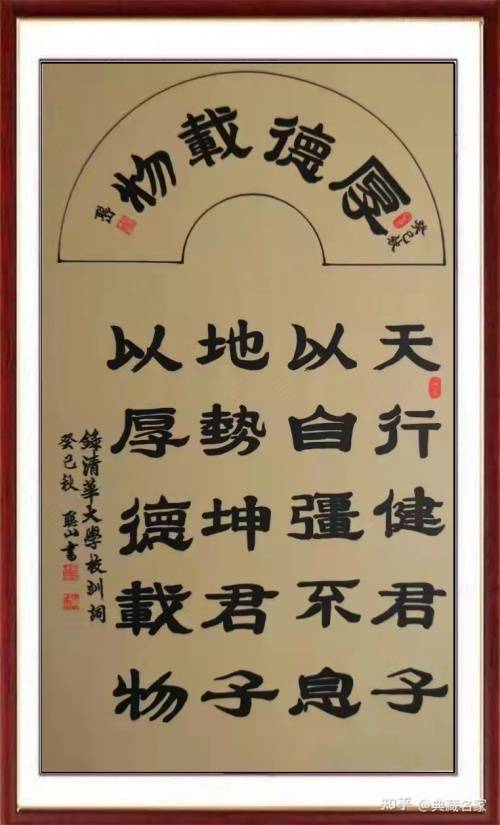 癸巳秋
厚德載物
天行健君子
以自彊不息
地勢坤君子
以厚德載物
錄清華大學校訓詞
癸巳秋 聯山書
知乎 @典藏名家